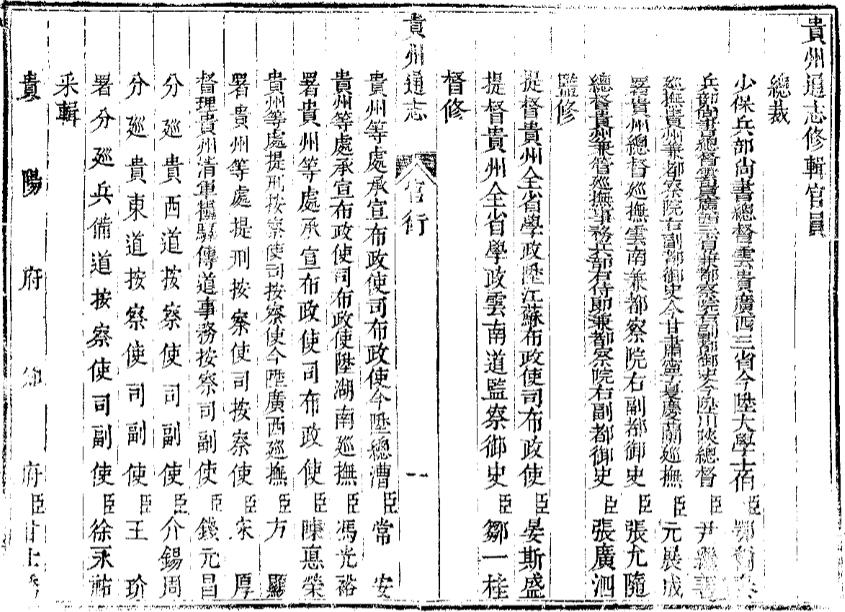 貴州通志修輯官員
總裁
少保兵部尚書總督雲貴廣西三省今陞大學士伯臣鄂爾泰
兵部尚書總督雲貴廣西三省兼都察院右副都御史今陞川陝總督臣尹繼善
巡撫貴州兼都察院右副都御史今甘肅寧夏慶蘭巡撫臣元展成
署貴州總督巡撫雲南兼都察院右副都御史臣張允隨
總督貴州兼管巡撫事務兵部右侍郎兼都察院右副都御史臣張廣泗
監修
提督貴州全省學政陞江蘇布政使司布政使臣晏斯盛
提督貴州全省學政雲南道監察御史臣鄒一桂
督修
貴州通志 官銜 一
貴州等處承宣布政使司布政使今陞總漕臣常安
貴州等處承宣布政使司布政使陞湖南巡撫臣馮光裕
署貴州等處承宣布政使司布政使臣陳惪榮
貴州等處提刑按察使司按察使今陞廣西巡撫臣方顯
署貴州等處提刑按察使司按察使臣宋厚
督理貴州清軍糧驛傳道事務按察司副使臣錢元昌
分廵貴西道按察使司副使臣介錫周
分廵貴東道按察使司副使臣王玠
署分廵兵備道按察使司副使臣徐永祐
采輯
貴陽府知府臣甘士